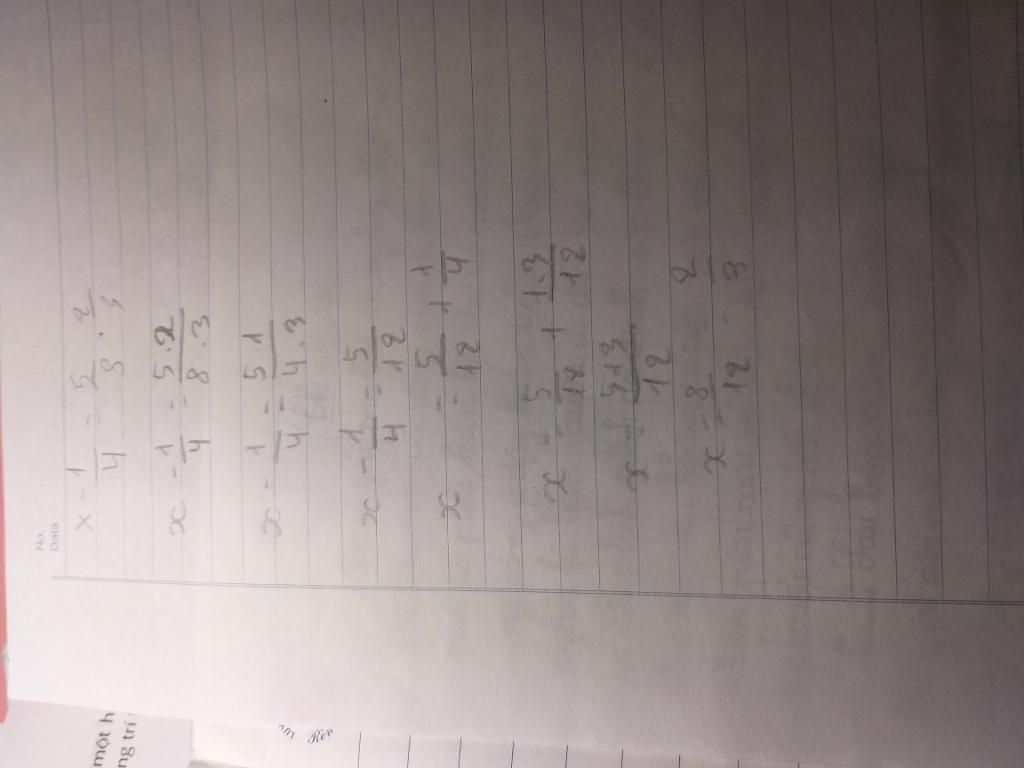 No.
Date
x - 1/4 = 5/8 . 2/3
x - 1/4 = 5.2/8.3
x - 1/4 = 5.1/4.3
x - 1/4 = 5/12
x = 5/12 + 1/4
x = 5/12 + 1.3/12
x = 5+3/12
x = 8/12 = 2/3
một h
ng trí